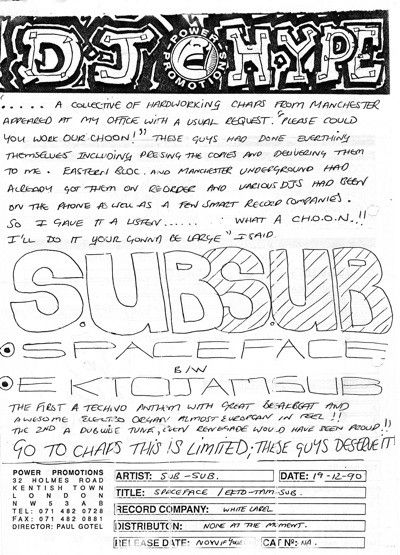 DJ HYPE
POWER PROMOTIONS
..... A COLLECTIVE OF HARDWORKING CHAPS FROM MANCHESTER
APPEARED AT MY OFFICE WITH A USUAL REQUEST. "PLEASE COULD
YOU WORK OUR CHOON!" THESE GUYS HAD DONE EVERTHING
THEMSELVES INCLUDING PRESING THE COPIES AND DELIVERING THEM
TO ME. EASTERN BLOC. AND MANCHESTER UNDERGROUND HAD
ALREADY GOT THEM ON REORDER AND VARIOUS DJS HAD BEEN
ON THE PHONE AS WELL AS A FEW SMART RECORD COMPANIES.
SO I GAVE IT A LISTEN...... WHAT A CHOON.!!
I'LL DO IT YOUR GONNA BE LARGE" I SAID
S.UBS.UB
SPACEFACE
B/W
EKTOJAMSUB
THE FIRST A TECHNO ANTHEM WITH GREAT BREAKBEAT AND
AWESOME ELECTRO ORGAN ALMOST EUROPEAN IN FEEL !!
THE 2ND A DUBWISE TUNE, EVEN RENEGADE WOULD HAVE BEEN PROUD.!!
GO TO CHAPS THIS IS LIMITED; THESE GUYS DESERVE IT
POWER PROMOTIONS
32 HOLMES ROAD
KENTISH TOWN
LONDON
NW5 3AB
TEL: 071 482 0728
FAX: 071 482 0881
DIRECTOR: PAUL GOTEL
ARTIST: SUB-SUB. DATE: 19-12-90
TITLE: SPACEFACE / EKTO-JAM-SUB.
RECORD COMPANY: WHITE LABEL
DISTRIBUTON: NONE AT THE MOMENT.
RELEASE DATE: CAT Nº: NA.